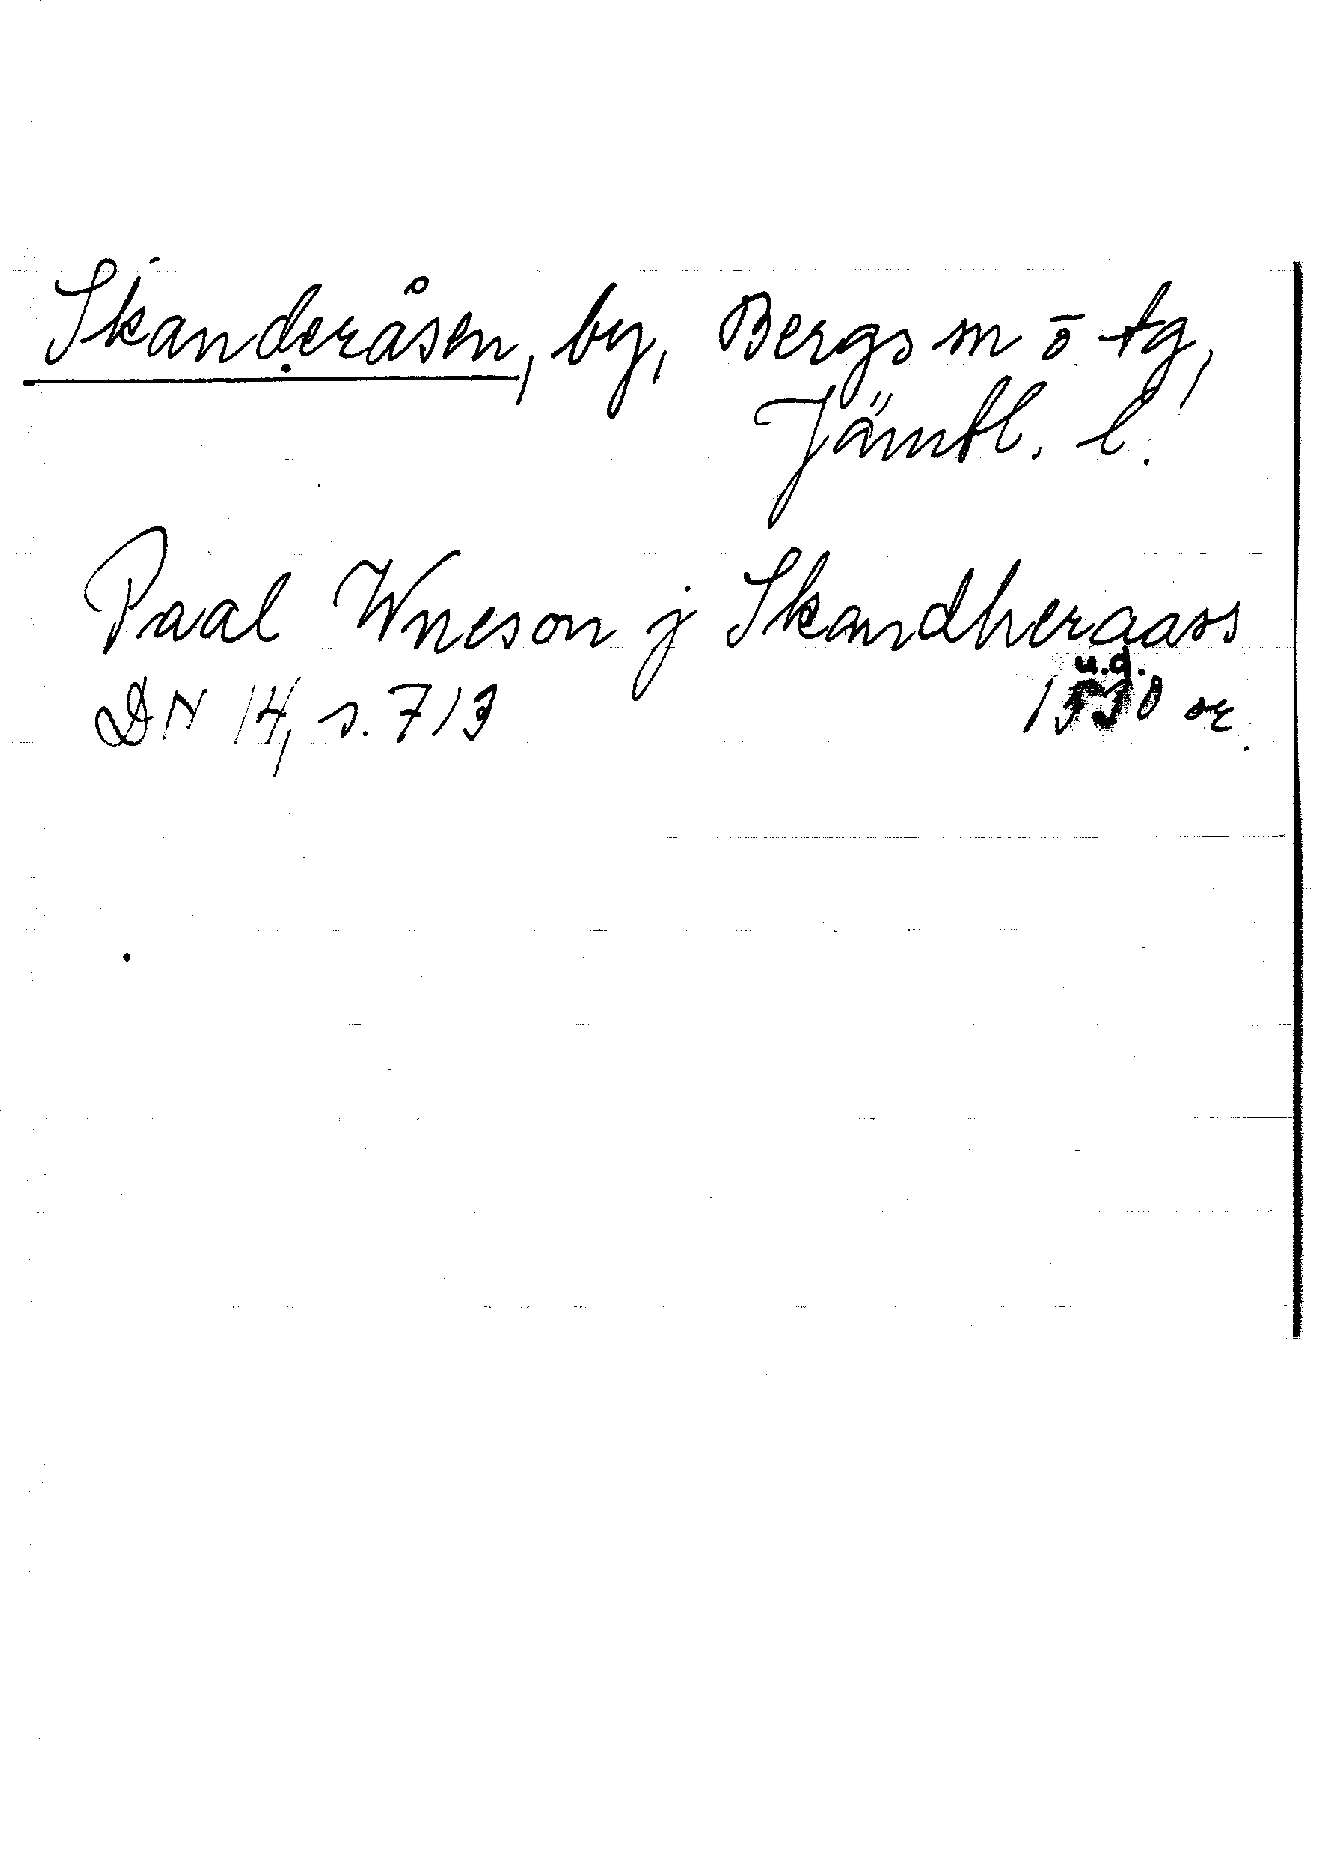 Skanderåsen, by, Bergs m ō tg,
Jämtl. l.
Paal Wneson j Skandheraass
u.d.
DN 14, s. 713 1530 or.